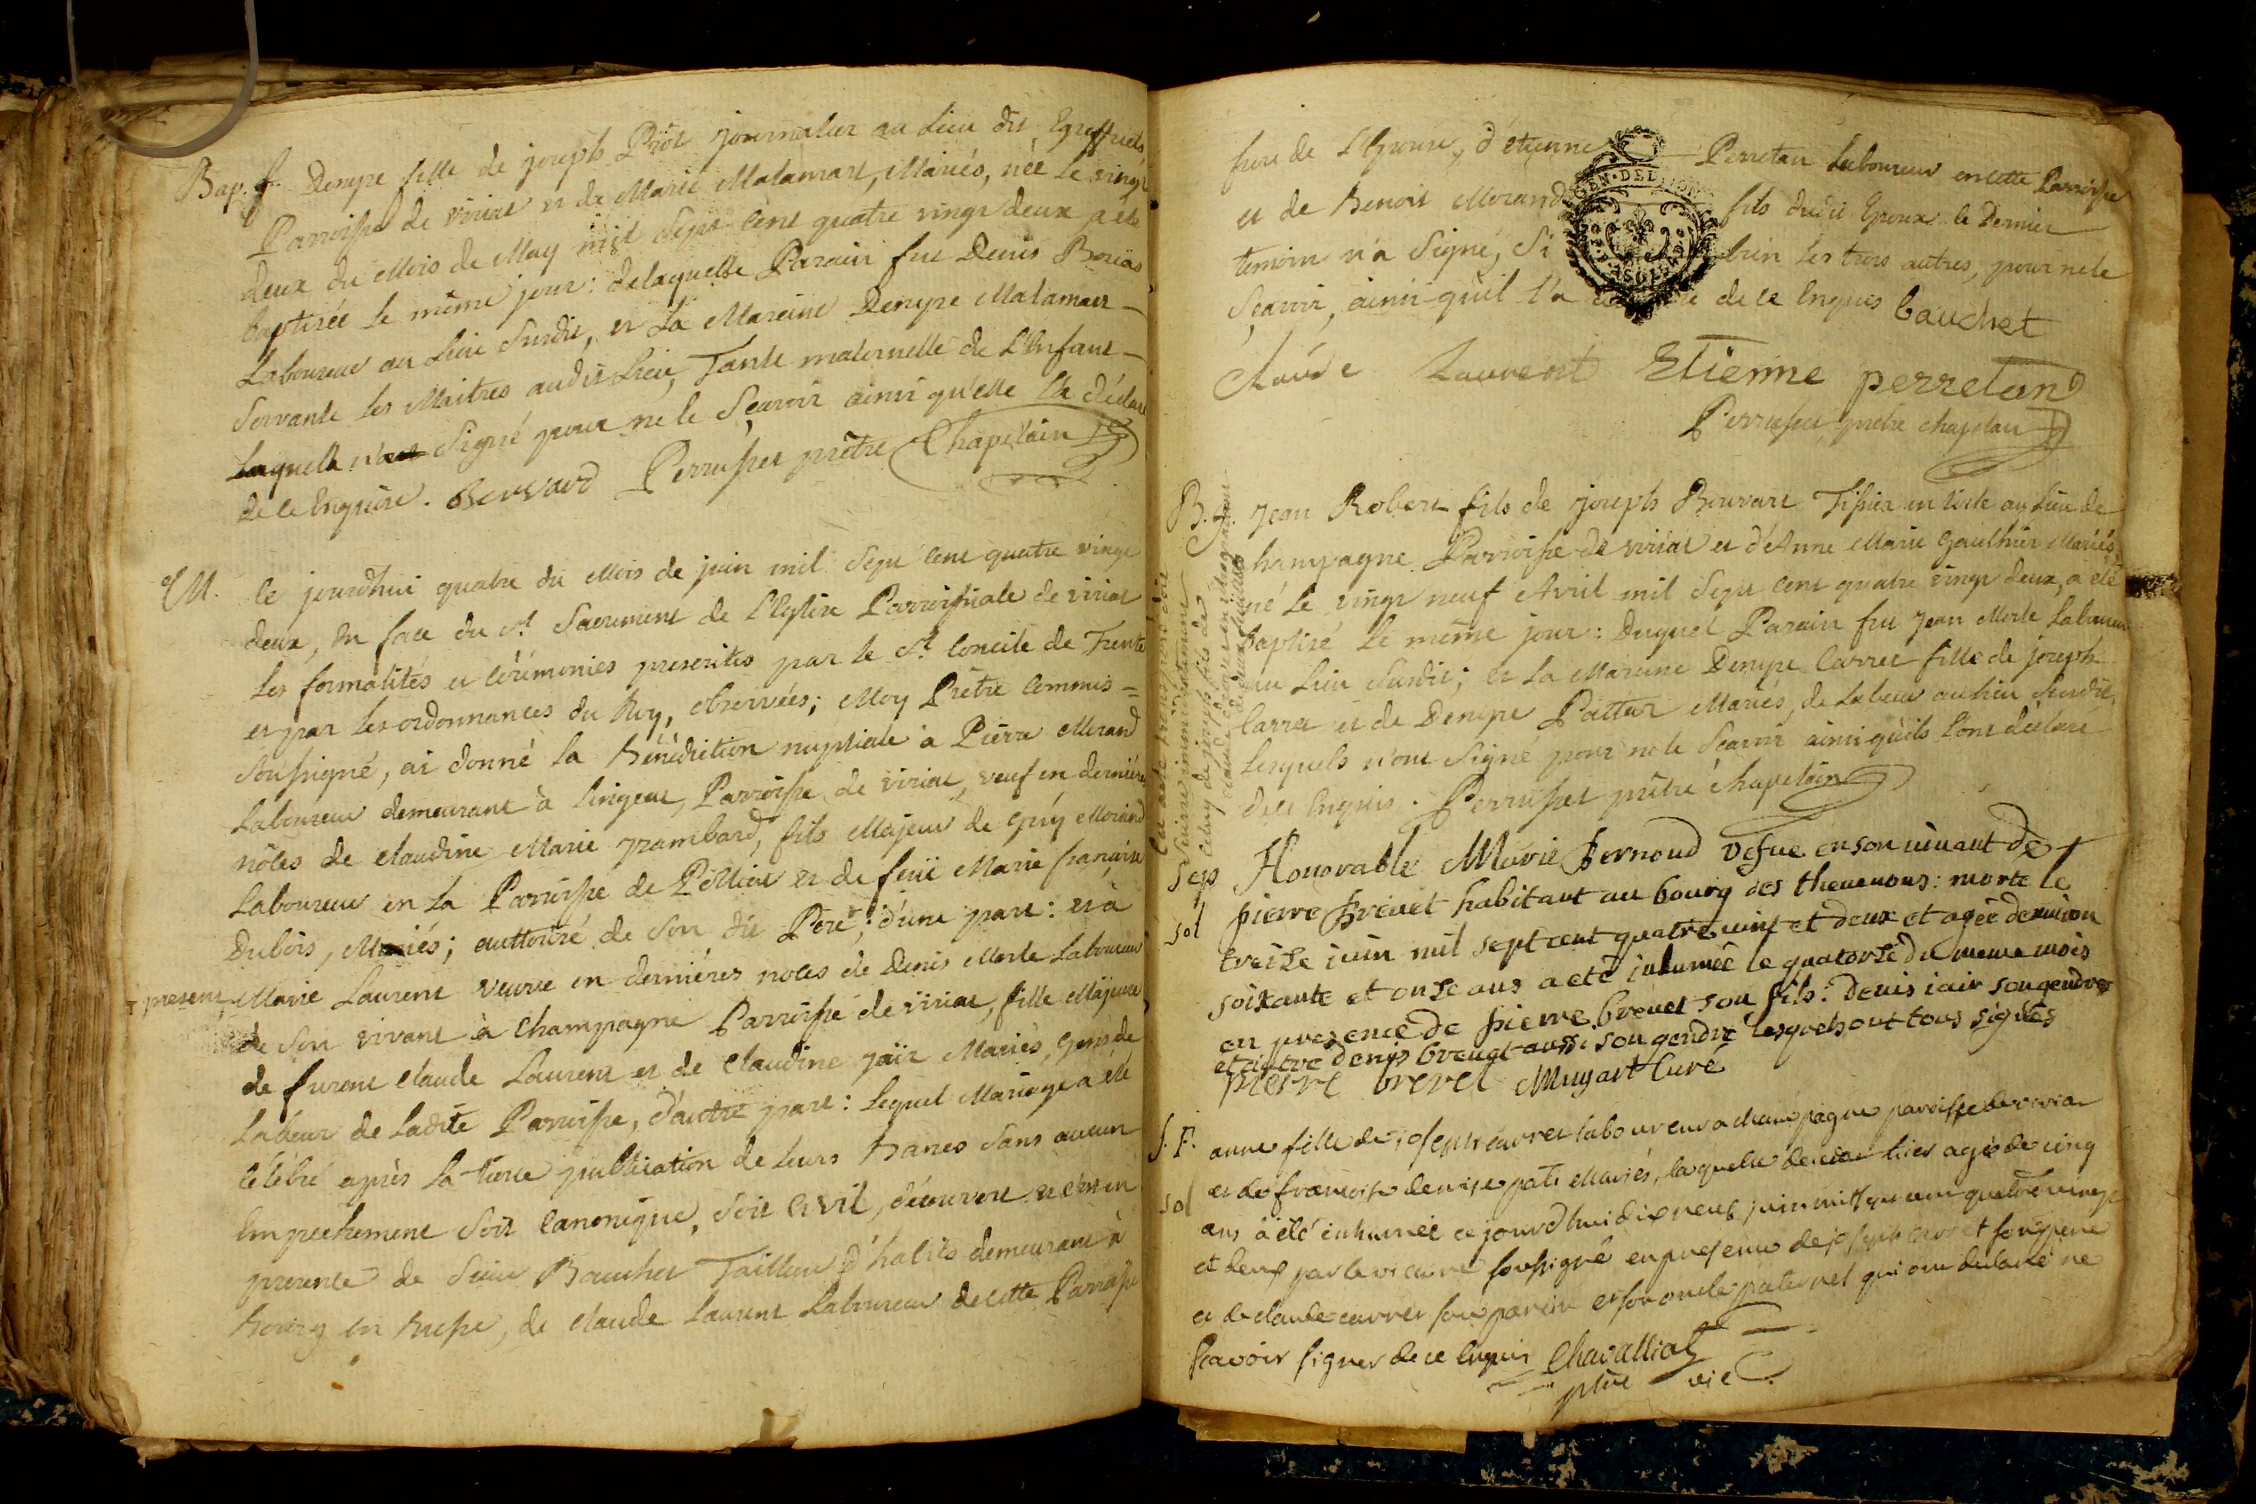 Bap. f. Denyse fille de joseph Prôt journalier au Lieu dit
Parroisse de viriat et de Marie Malamart, Mariés, née le vingt
deux du Mois de May mil Sept Cent quatre vingt deux a été
baptisée le même jour: delaquelle Parain fut Denis
Laboureur au Lieu Susdit, et La Maraine Denyse Malamart
Servante les Maitres audit Lieu, Tante maternelle de L'Enfant
Laquelle Signé pour ne le Sçavoir ainsi qu'elle l'a déclaré
de ce Enquise. Perrusset prêtre Chapelain
M. Ce jourdhui quatre du Mois de juin mil Sept Cent quatre vingt
deux, en face du St. Sacrement de L'Eglise Parroissiale de viriat
Les formalités et Cérémonies prescrites par le St. Concile de Trente
et par les ordonnances du Roy, observées; Moy Prêtre Commis =
Soussigné, ai donné la Bénédiction nuptiale à Pierre Morand
Laboureur demeurant à Lingeat, Parroisse de viriat, veuf en dernières
nôces de Claudine Marie frambard, fils Majeur de Morand
Laboureur en la Parroisse de Pélliat et de feüe Marie françoise
Dubois, Mariés; authorisé de Son dit Pere; d'une part: et à
present Marie Laurent veuve en dernières noces de Denis Merle Laboureur
de Son vivant à Champagne Parroisse de viriat, fille Majeure
de furent Claude Laurent et de Claudine jaïr Mariés, gens de
Labeur de Ladite Parroisse, d'autre part: Lequel Mariage a été
célébré après la tierce publication de leurs Banes Sans aucun
Empechement Soit Canonique, Soit Civil, découvert et en
presence de Sieur Bauchet Tailleur d'habits demeurant à
bourg en bresse, de Claude Laurent Laboureur de cette Parroisse
frere de L'Epouse, d'étienne Perretan Laboureur en cette Parroisse
et de Benoit Morand fils dudit Epoux le Dernier
temoin n'a Signé, Si bien les trois autres, pour ne le
Sçavoir, ainsi qu'il l'a de ce Enquis bauchet
GEN. DE LYON
Claude Laurent Etienne perretan
Perrusset prêtre chapelain
B. f. Jean Robert fils de joseph Bouvart Tissier en toile au Lieu de
Champagne Parroisse de viriat et d'Anne Marie Gauthier Mariés,
né Le vingt neuf Avril mil Sept Cent quatre vingt deux, a été
baptisé Le même jour: Duquel Parain fut Jean Merle Laboureur
au Lieu Susdit; et La Maraine Denyse Carret fille de joseph
Carret et de Denyse Mariés, de Labeur au Lieu Susdit,
Lesquels n'ont Signé pour ne le Sçavoir ainsi qu'ils l'ont déclaré
de ce Enquis. Perrusset prêtre chapelain
Sep Honorable Marie Bernoud vefue en son uiuant de
sol pierre Breuet habitant au bourg des theuenons: morte le
treize iuin mil sept cent quatre uint et deux et agée denuiron
soixante et onze ans a eté inhumée le quatorze du meme mois
en presence de pierre breuet son fils: denis iair son gendre
et denis breuet aussi son gendre lesquels ont tous signés
pierre brevet Mugart Curé
S. F. anne fille de joseph carret laboureur a champagne paroisse de viria
et de françoise denise Mariés, laquelle agée de cinq
sol ans à été inhumée ce jourd'hui dix neuf juin mil sept cent quatre vingt
et deux par le vicaire soussigné en presence de joseph carret son pere
et de claude carret son parein et son oncle paternel qui ont declaré ne
scavoir signer de ce Enquis Chavalliat
ptre vic